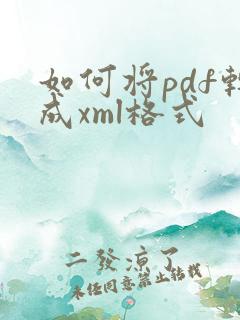 如何将pdf转
成xml格式
二發涼了
未经同意禁止转载